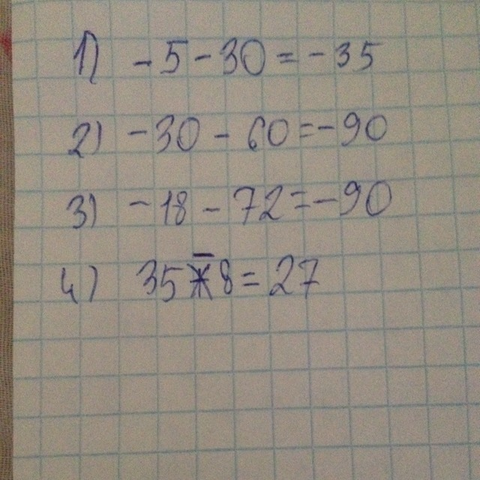 1) -5-30=-35
2) -30-60=-90
3) -18-72=-90
4) 35-8=27